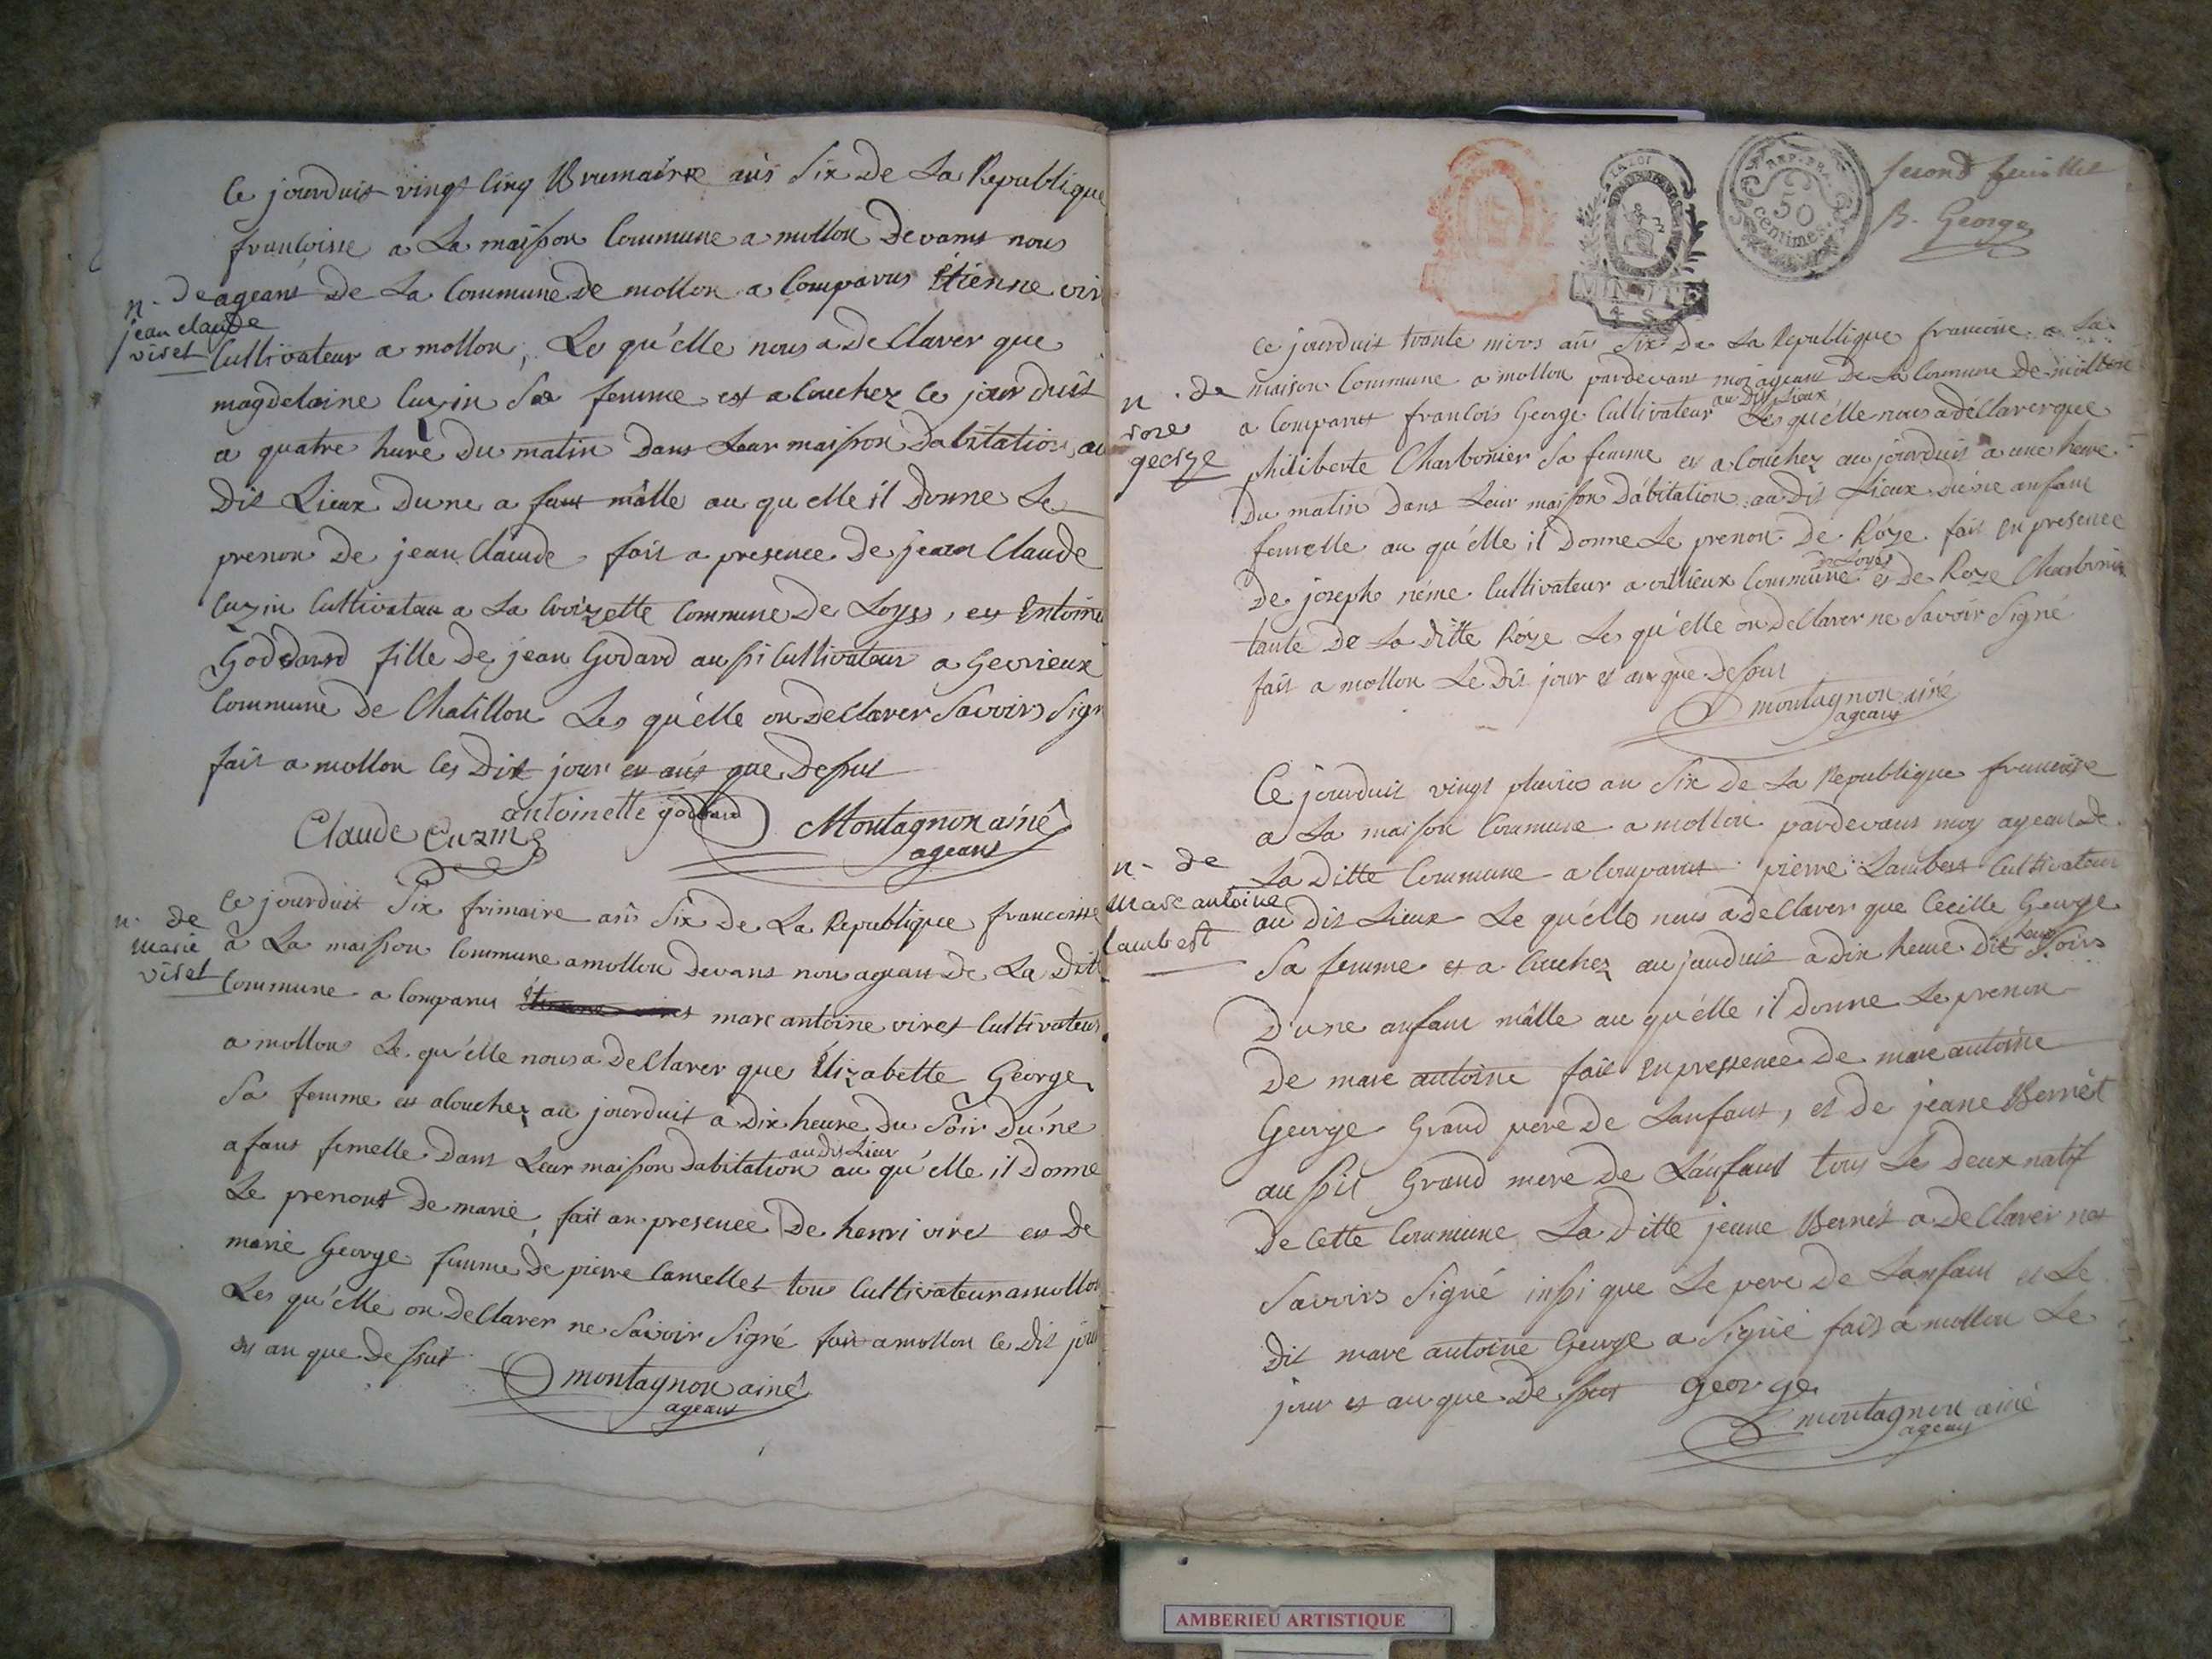 Ce jourduit vingt cinq Brumaire ans Six De La Republique
francoisse a La maison Commune a mollon Devant nous
ageant De La Commune De mollon a Comparus Étienne vir
Cultivateur a mollon, Le qu'elle nous a Declarer que
magdelaine Cuzin Sa femme est a Couchez Ce jour duit
a quatre hure Du matin Dans Leur maison Dabitation au
Dit Lieux Dune a fant mâlle au qu elle il Donne Le
prenon De jean Claude fait a presence De jean Claude
Cuzin Cultivateur a La Croizette Commune De Loyss, et Entoine
Goddard fille De jean Godard aussi Cultivateur a Gevrieux
Commune De Chatillon Les qu'elle on Declarer Savoirs Sign
fait a mollon les Dit jour et ans que Dessus
antoinette godard
Claude Cuzin
Montagnon ainé
ageant
n. De
jean claude
viret
Ce jourduit Six frimaire ans Six De La Republique francoisse
à La maison Commune a mollon Devant nou ageant De La Dit
Commune a Comparu marc antoine viret Cultivateur
a mollon Le qu'elle nous a Declarer que Élizabette George
Sa femme et a Couchez au jourduit a Dix heure Du Soir Du'ne
a fant femelle Dans Leur maison Dabitation au dit Lieu au qu'elle il Donne
Le prenont De marie, fait an presence De henri viret et De
marie George femme De pierre Camellet tou Cultivateur a mollon
Les qu'elle on Declarer ne Savoir Signé fait a mollon le Dit jou
et an que Dessus
montagnon ainé
ageant
n. De
Marie
viret
second feuillet
B. George
LA LOI
MINUTE
REP. FRA.
50
centimes
Ce jourduit trante nivos an Six De La Republique francoise a La
maison Commune a mollon pardevant moi ageant De La Commune De mollon
a Comparut francois George Cultivateur au Dit Lieux Les qu'elle nous a déclarer que
philiberte Charbonier Sa femme et a Couchez au jourduit a une heure
Du matin Dans Leur maison D'abitation au Dit Lieux Du'ne anfant
femelle au qu'elle il Donne Le prenon De Róze fait En presence
De joseph néme Cultivateur a villieux Commune de Loyes et De Roze Charbonie
tante De La Ditte Róze Les qu'elle on Declarer ne Savoir Signé
fait a mollon Le Dit jour et an que Dessus
montagnon ainé
ageant
n. De
roze
george
Ce jourduit vingt pluvios an Six De La Republique francoise
a La maison Commune a mollon pardevant moy ageant De
La Ditte Commune a Comparut pierre Lambert Cultivateur
au Dit Lieux Le qu'elle nous a Declarer que Cecille George
Sa femme et a Couchez au jourduit a Dix heure Dit Soirs
D'une anfant mâlle au qu'elle il Donne Le prenon
De marc antoine fait En pressence De marc antoine
George Grand pere De Lanfant, et de jeane Bernét
aussit Grand mere De L'anfant tous Les Deux natif
De Cette Commune La Ditte jeane Bernét a Declarer nat
Savoirs Signé inssi que Le pere De Lanfant et Le
Dit marc antoine George a Signé fait a mollon Le
jour et an que Dessus george
montagnon ainé
ageant
n. De
Marc antoine
lambert
AMBERIEU ARTISTIQUE